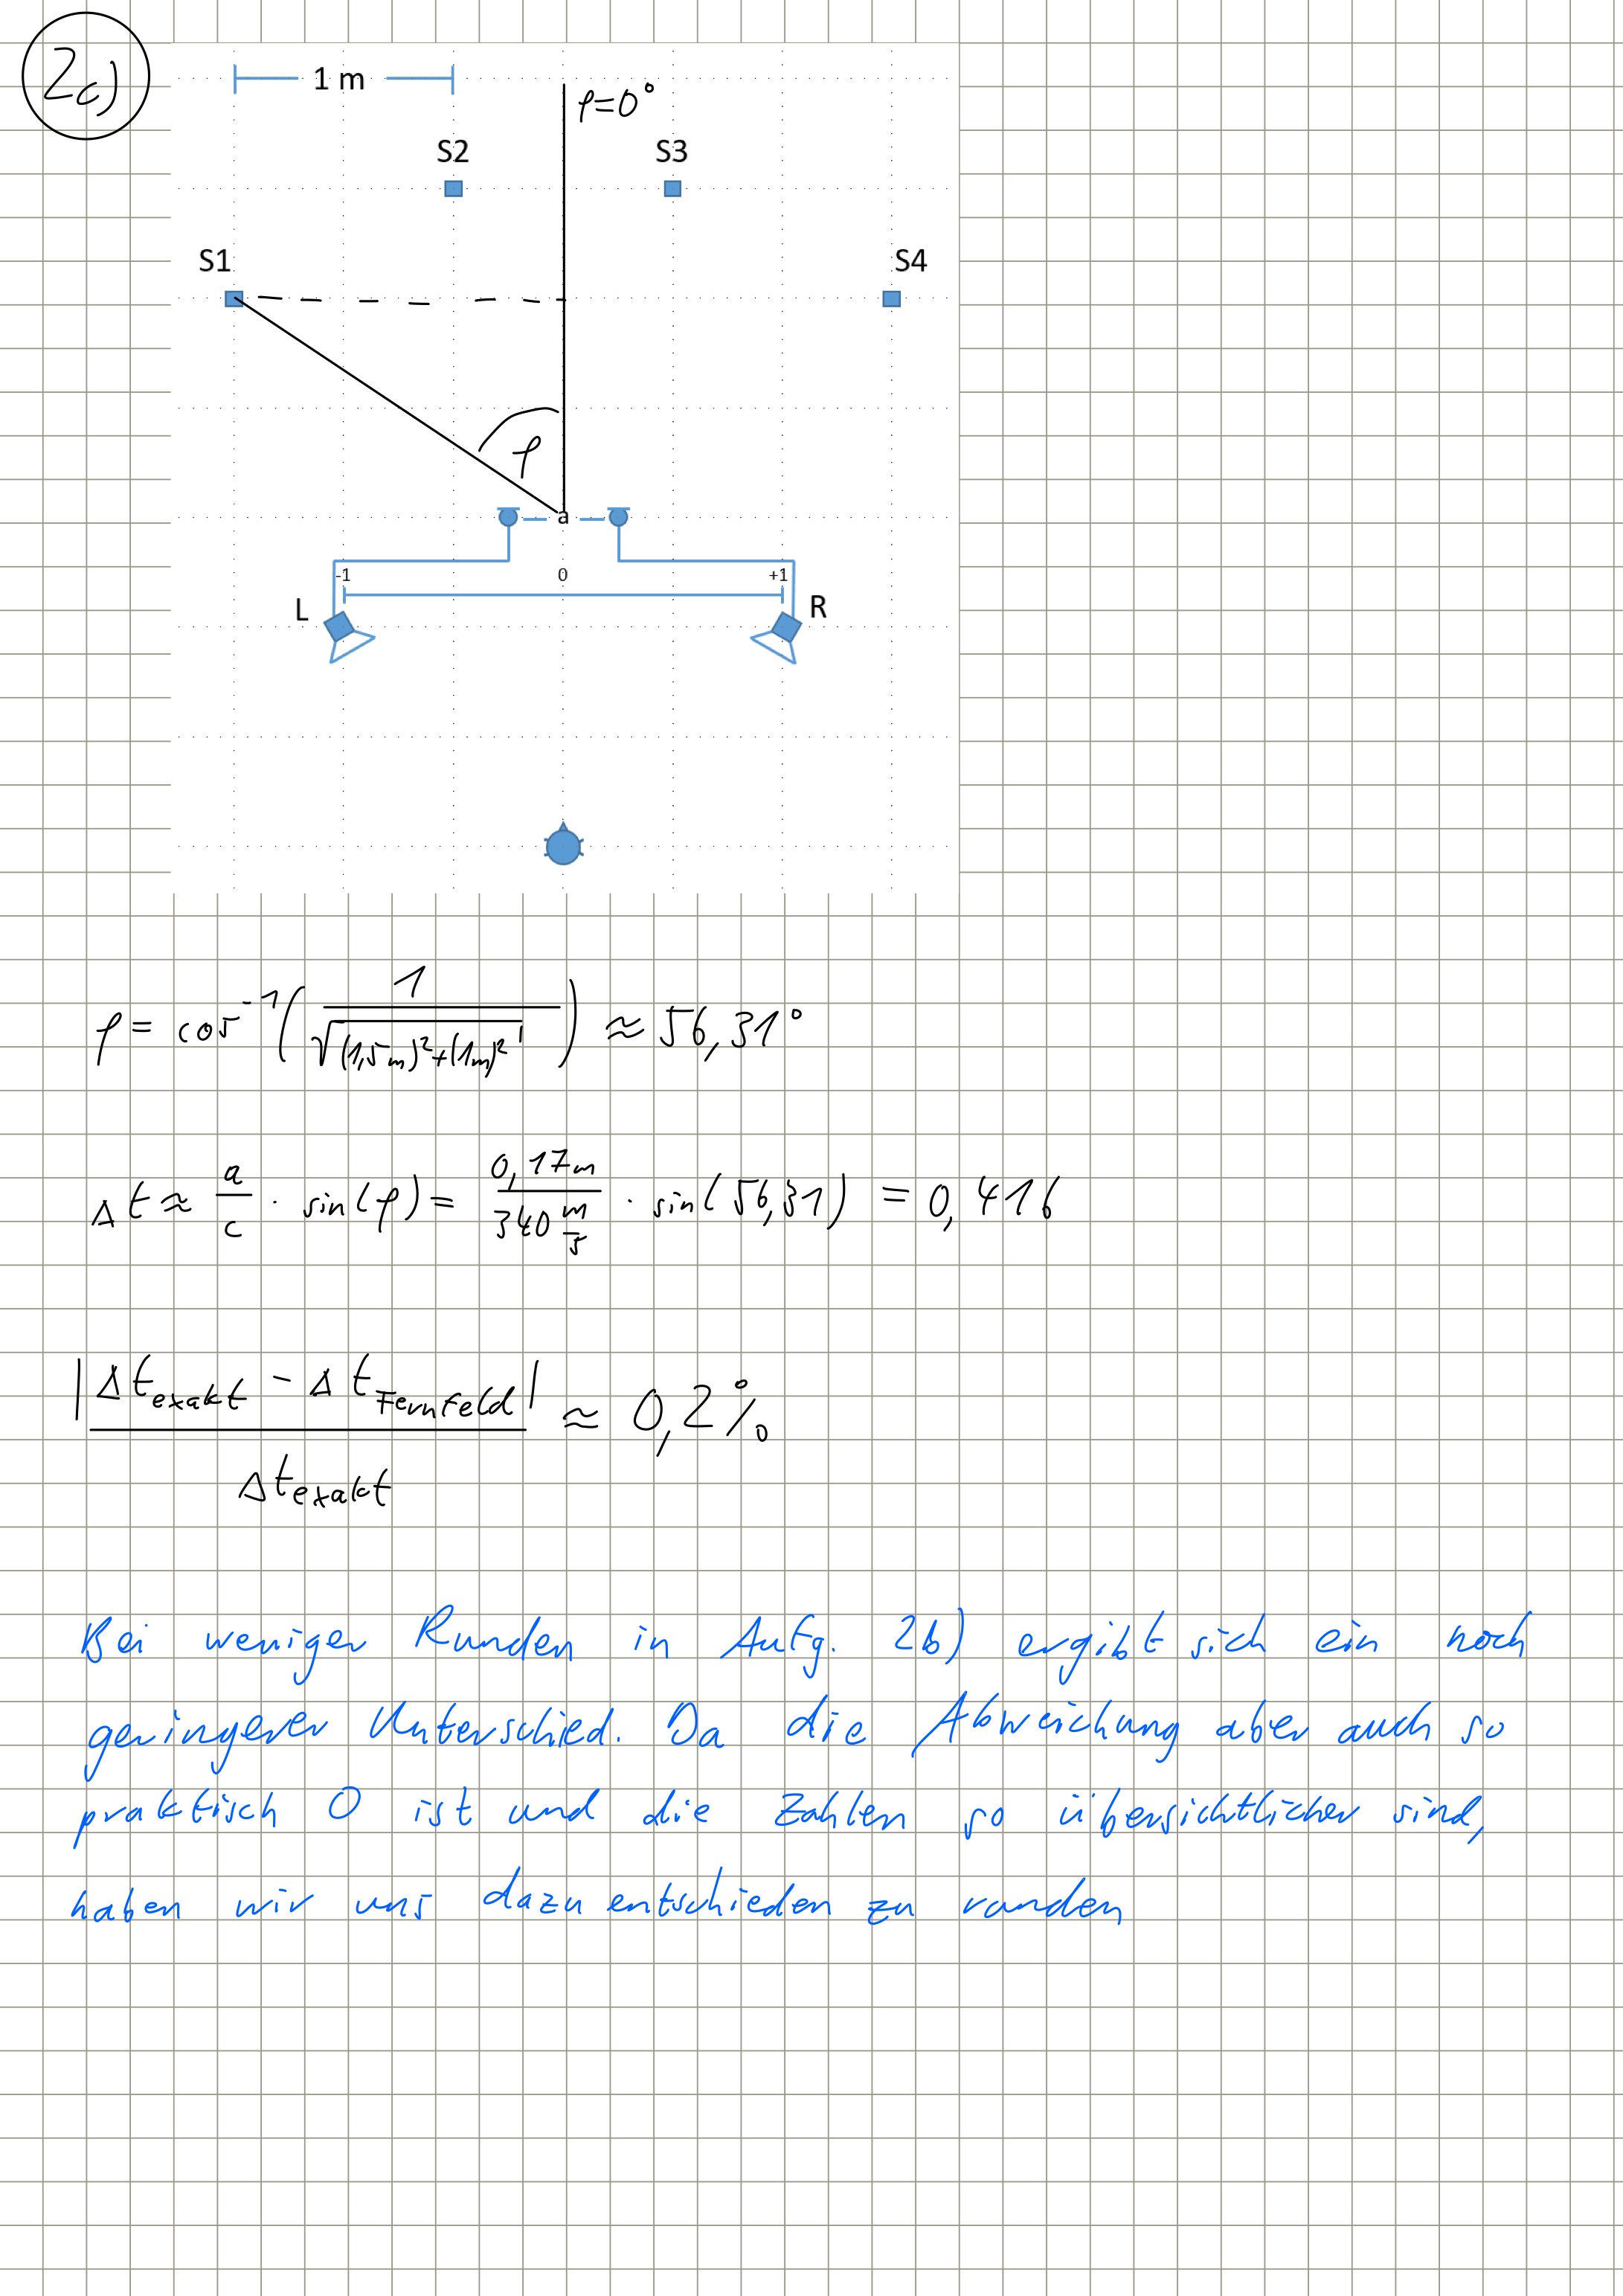 2c)
1 m
φ=0°
S2 S3
S1 S4
φ
a
-1 0 +1
L R
φ = cos⁻¹(1/√((1,5m)²+(1m)²)) ≈ 56,31°
Δt ≈ a/c · sin(φ) = 0,17m/340 m/s · sin(56,31) = 0,416
|Δt_exakt - Δt_Fernfeld|/Δt_exakt ≈ 0,2%
Bei weniger Runden in Aufg. 2b) ergibt sich ein noch
geringerer Unterschied. Da die Abweichung aber auch so
praktisch 0 ist und die Zahlen so übersichtlicher sind,
haben wir uns dazu entschieden zu runden